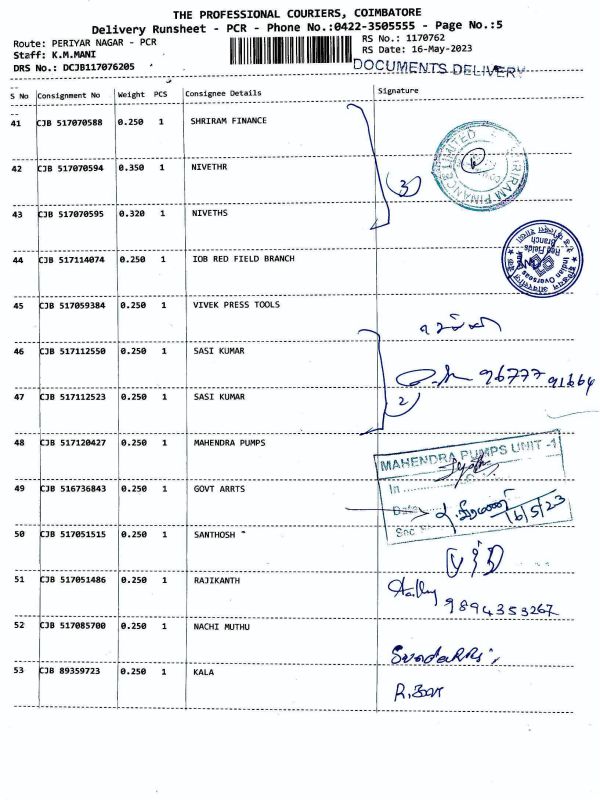 THE PROFESSIONAL COURIERS, COIMBATORE
Delivery Runsheet - PCR - Phone No.:0422-3505555 - Page No.:5
Route: PERIYAR NAGAR - PCR
RS No.: 1170762
Staff: K.M.MANI
RS Date: 16-May-2023
DRS No.: DCJB117076205
DOCUMENTS DELIVERY
S No Consignment No Weight PCS Consignee Details Signature
41 CJB 517070588 0.250 1 SHRIRAM FINANCE
SHRIRAM FINANCE LIMITED
42 CJB 517070594 0.350 1 NIVETHR
3
43 CJB 517070595 0.320 1 NIVETHS
44 CJB 517114074 0.250 1 IOB RED FIELD BRANCH
Indian Overseas
Red Fields
Branch
45 CJB 517059384 0.250 1 VIVEK PRESS TOOLS
46 CJB 517112550 0.250 1 SASI KUMAR
96777 91664
47 CJB 517112523 0.250 1 SASI KUMAR
2
48 CJB 517120427 0.250 1 MAHENDRA PUMPS
MAHENDRA PUMPS UNIT -1
In
49 CJB 516736843 0.250 1 GOVT ARRTS
Date
16/5/23
Sec
50 CJB 517051515 0.250 1 SANTHOSH
51 CJB 517051486 0.250 1 RAJIKANTH
9894353267
52 CJB 517085700 0.250 1 NACHI MUTHU
53 CJB 89359723 0.250 1 KALA